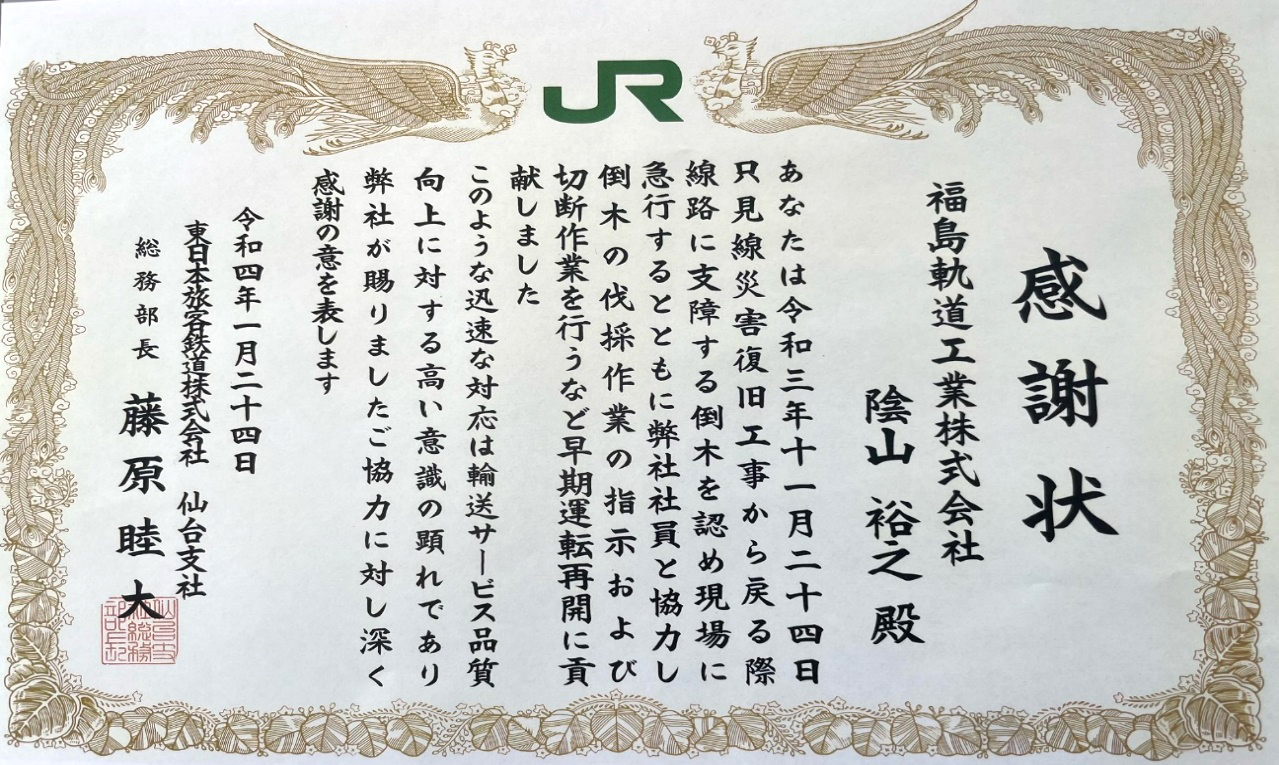 JR
感謝状
福島軌道工業株式会社
陰山 裕之 殿
あなたは令和三年十一月二十四日
只見線災害復旧工事から戻る際
線路に支障する倒木を認め現場に
急行するとともに弊社社員と協力し
倒木の伐採作業の指示および
切断作業を行うなど早期運転再開に貢
献しました
このような迅速な対応は輸送サービス品質
向上に対する高い意識の顕れであり
弊社が賜りましたご協力に対し深く
感謝の意を表します
令和四年一月二十四日
東日本旅客鉄道株式会社 仙台支社
総務部長 藤原睦大